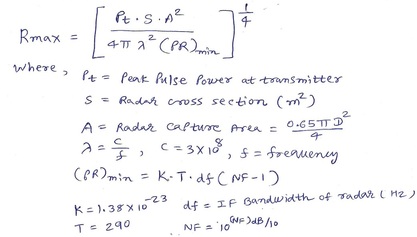 Rmax = [ Pt · S · A² / 4π λ² (PR)min ]^1/4
where,
Pt = Peak Pulse Power at transmitter
S = Radar cross section (m²)
A = Radar Capture Area = 0.65πD² / 4
λ = c/f , C = 3×10⁸, f = frequency
(PR)min = K·T·df (NF-1)
K = 1.38×10⁻²³ df = IF Bandwidth of radar (Hz)
T = 290 NF = 10^(NF)dB/10